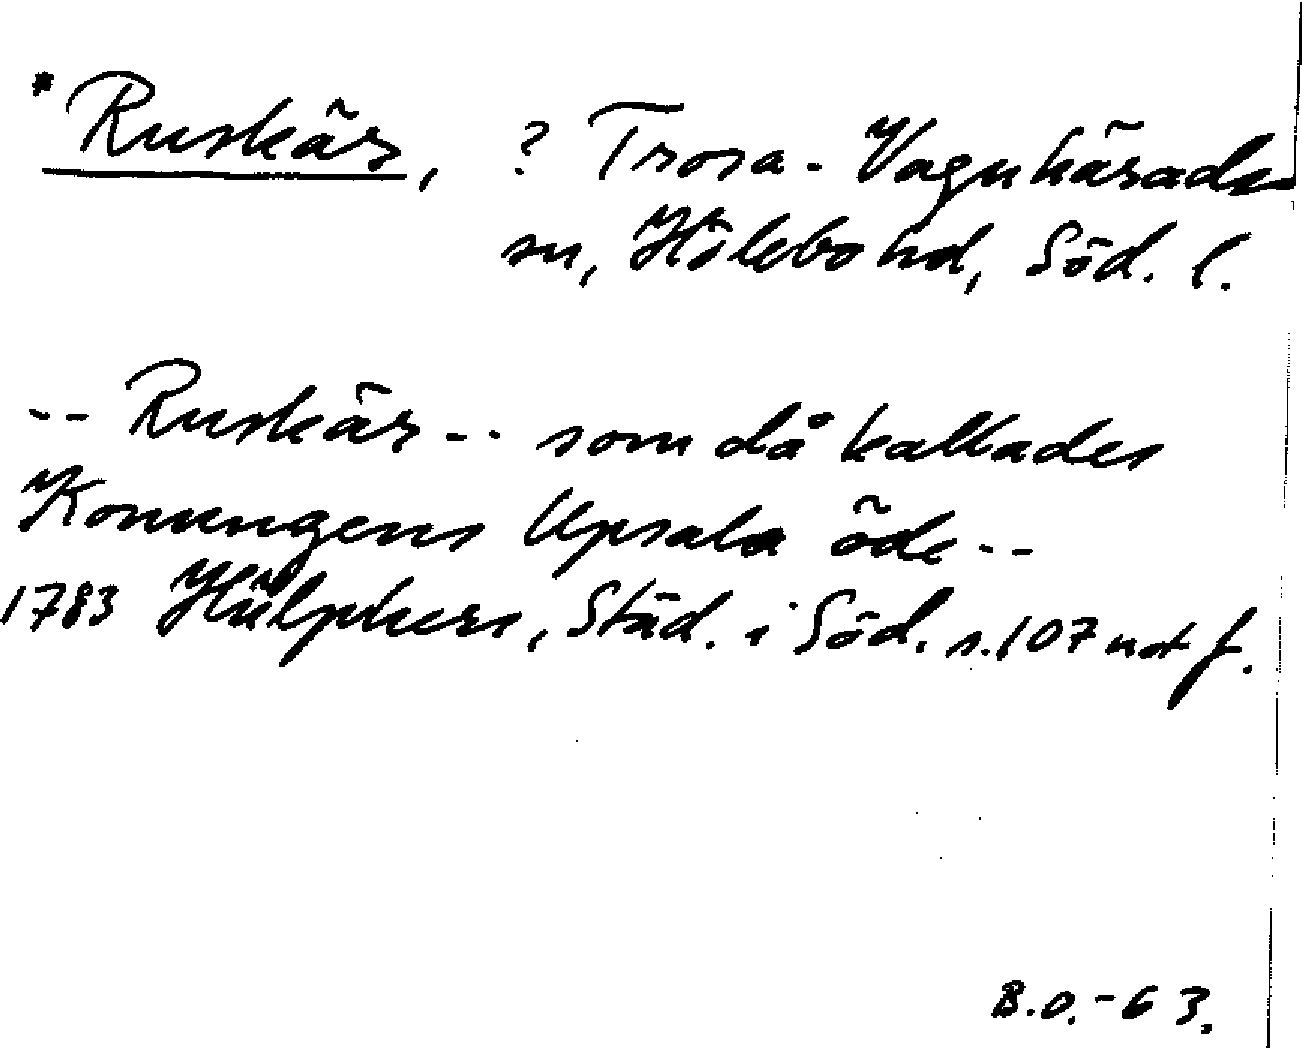 * Ruskär, ? Trosa-Vagnhärads
sn, Hölebo hd, Söd. l.
-- Ruskär -- som då kallades
Konungens Upsala öde --
1783 Hülphers, Städ. i Söd. s. 107 not f.
B.O. -63.